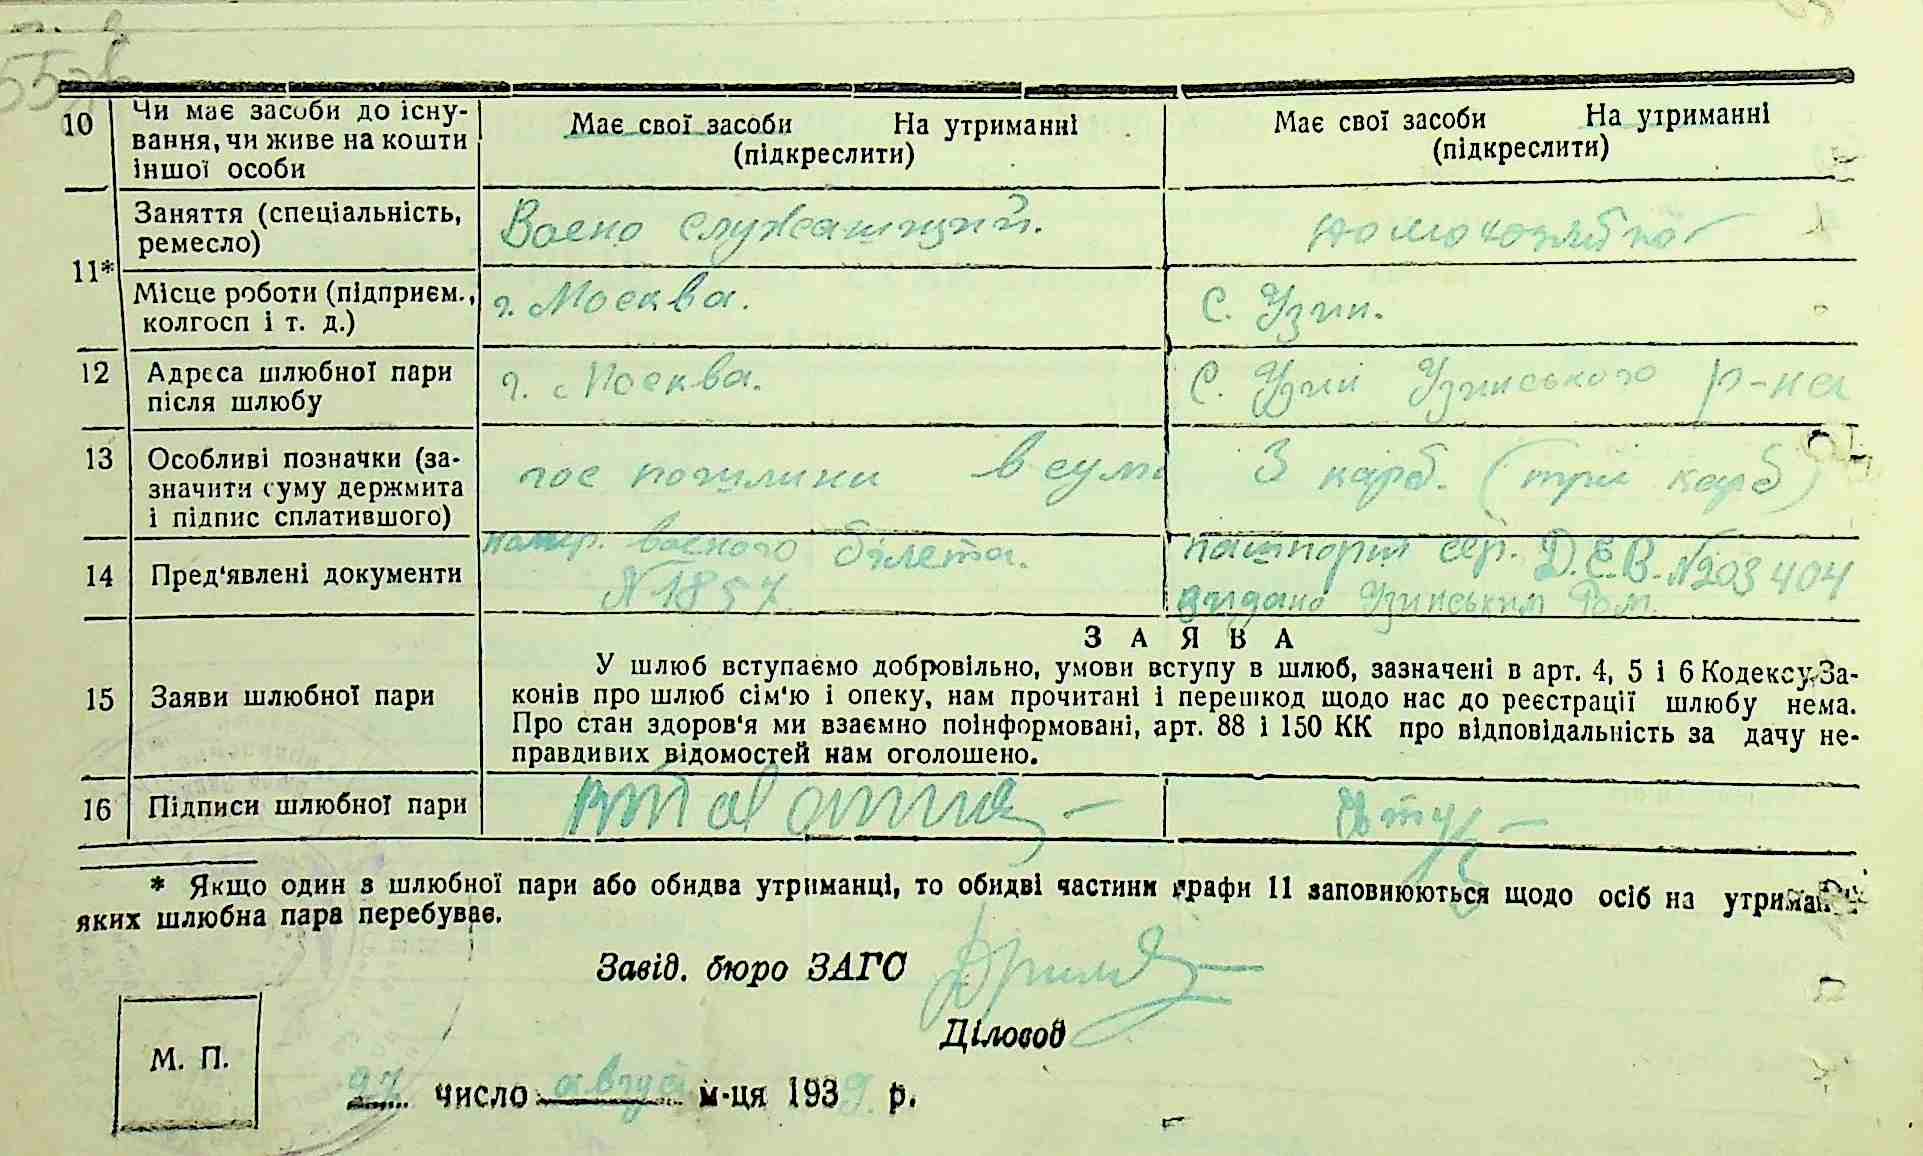 10 Чи має засоби до існу-
вання, чи живе на кошти
іншої особи
Має свої засоби На утриманні
(підкреслити)
Має свої засоби На утриманні
(підкреслити)
11*
Заняття (спеціальність,
ремесло)
Воено служащий.
Місце роботи (підприєм.,
колгосп і т. д.)
г. Москва.
С. Узин.
12 Адреса шлюбної пари
після шлюбу
г. Москва.
С. Узин Узинського р-на
13 Особливі позначки (за-
значити суму держмита
і підпис сплатившого)
гос пошлини в сумі 3 карб. (три карб)
14 Пред'явлені документи
номер. военого білета.
№ 1857
пашпорт сер. Д.Е.В. №203404
видано Узинським
15 Заяви шлюбної пари
ЗАЯВА
У шлюб вступаємо добровільно, умови вступу в шлюб, зазначені в арт. 4, 5 і 6 Кодексу За-
конів про шлюб сім'ю і опеку, нам прочитані і перешкод щодо нас до реєстрації шлюбу нема.
Про стан здоров'я ми взаємно поінформовані, арт. 88 і 150 КК про відповідальність за дачу не-
правдивих відомостей нам оголошено.
16 Підписи шлюбної пари
* Якщо один з шлюбної пари або обидва утриманці, то обидві частини графи 11 заповнюються щодо осіб на
яких шлюбна пара перебуває.
Завід. бюро ЗАГС
Діловод
М. П.
27 число август м-ця 1939 р.